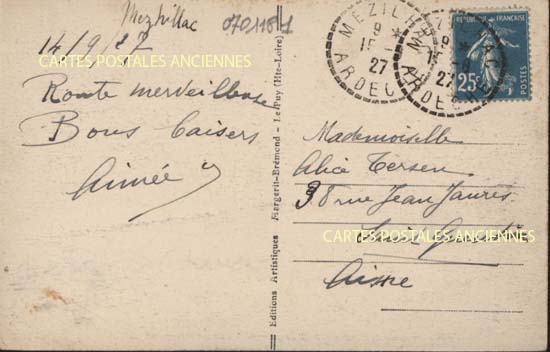 Mezhillac
0701181
14/9/27
CARTES POSTALES ANCIENNES
Route merveilleuse
Bons baisers
Aimée
Editions Artistiques Margerit-Brémond - Le Puy (Hte-Loire)
MEZILHAC
9 *
15 - 9
27
ARDECHE
MEZILHAC
9 *
15 - 9
27
ARDECHE
RÉPUBLIQUE FRANÇAISE
25c
POSTES
Mademoiselle
Alice Tersen
38 rue Jean Jaurès
CARTES POSTALES ANCIENNES
Saint Quentin
Aisne